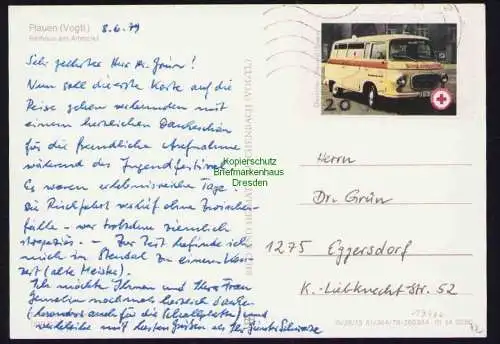 Plauen (Vogtl.)
8.6.79
Rathaus am Altmarkt
Sehr geehrter Herr Dr. Grün!
Nun soll die erste Karte auf die
Reise gehen verbunden mit
einem herzlichen Dankeschön
für die freundliche Aufnahme
während des Jugendfestivals.
Es waren erlebnisreiche Tage.
Die Rückfahrt verlief ohne Zwischen-
fälle - war trotzdem ziemlich
strapaziös. - Zur Zeit befinde ich
mich in Stendal zu einem Kon-
zert (alte Meister).
Ich möchte Ihnen und Ihrer Frau
Gemahlin nochmals herzlich danken
(besonders auch für die Schallplatten) und
verbleibe mit besten Grüßen als Ihr Günter
20
Herrn
Dr. Grün
1275 Eggersdorf
K.-Liebknecht-Str. 52
Kopierschutz
Briefmarkenhaus
Dresden
BILD UND HEIMAT REICHENBACH (VOGTL)